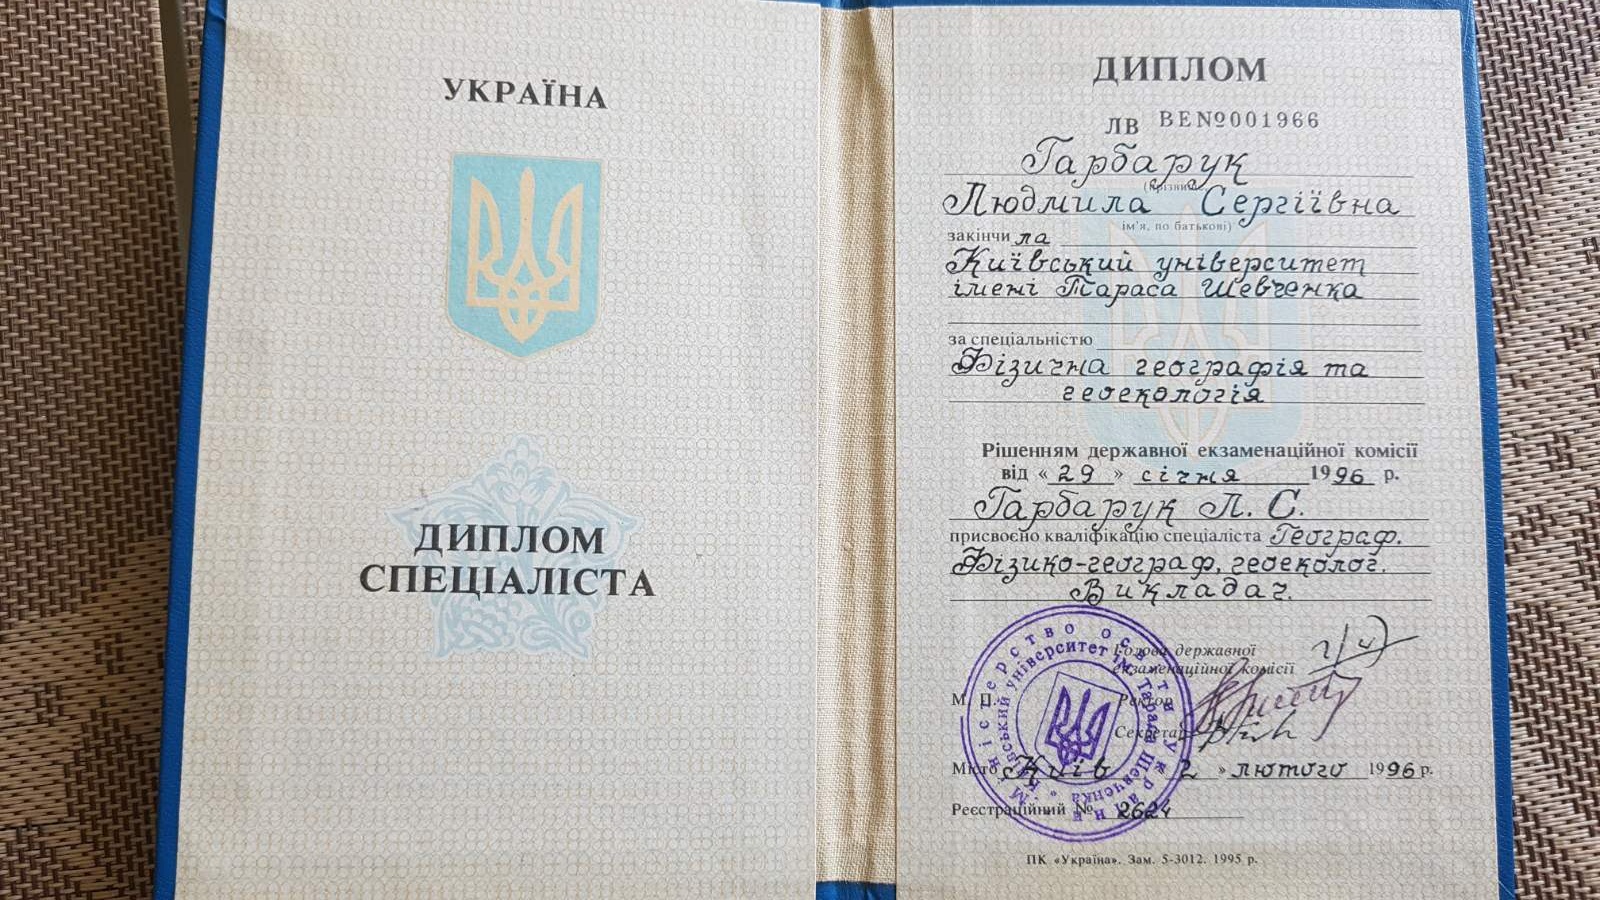 УКРАЇНА
ДИПЛОМ
СПЕЦІАЛІСТА
ДИПЛОМ
ЛВ ВЕ№001966
Гарбарук
(прізвище)
Людмила Сергіївна
ім'я, по батькові)
закінчи ла
Київський університет
імені Тараса Шевченка
за спеціальністю
Фізична географія та
геоекологія
Рішенням державної екзаменаційної комісії
від « 29 » січня 1996 р.
Гарбарук Л. С.
присвоєно кваліфікацію спеціаліста Географ.
Фізико-географ, геоеколог.
Викладач.
Голова державної
екзаменаційної комісії
М. П. Ректор
Секретар
Місто Київ 2 » лютого 1996 р.
Реєстраційний № 2624
Міністерство освіти України
Київський університет ім. Тараса Шевченка
ПК «Україна». Зам. 5-3012. 1995 р.